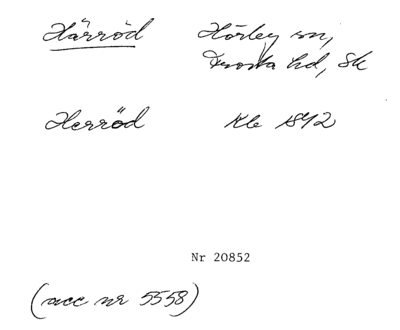 Härröd Hörby sn,
Frosta hd, Sk
Herröd Kb 1892
Nr 20852
(acc nr 5558)